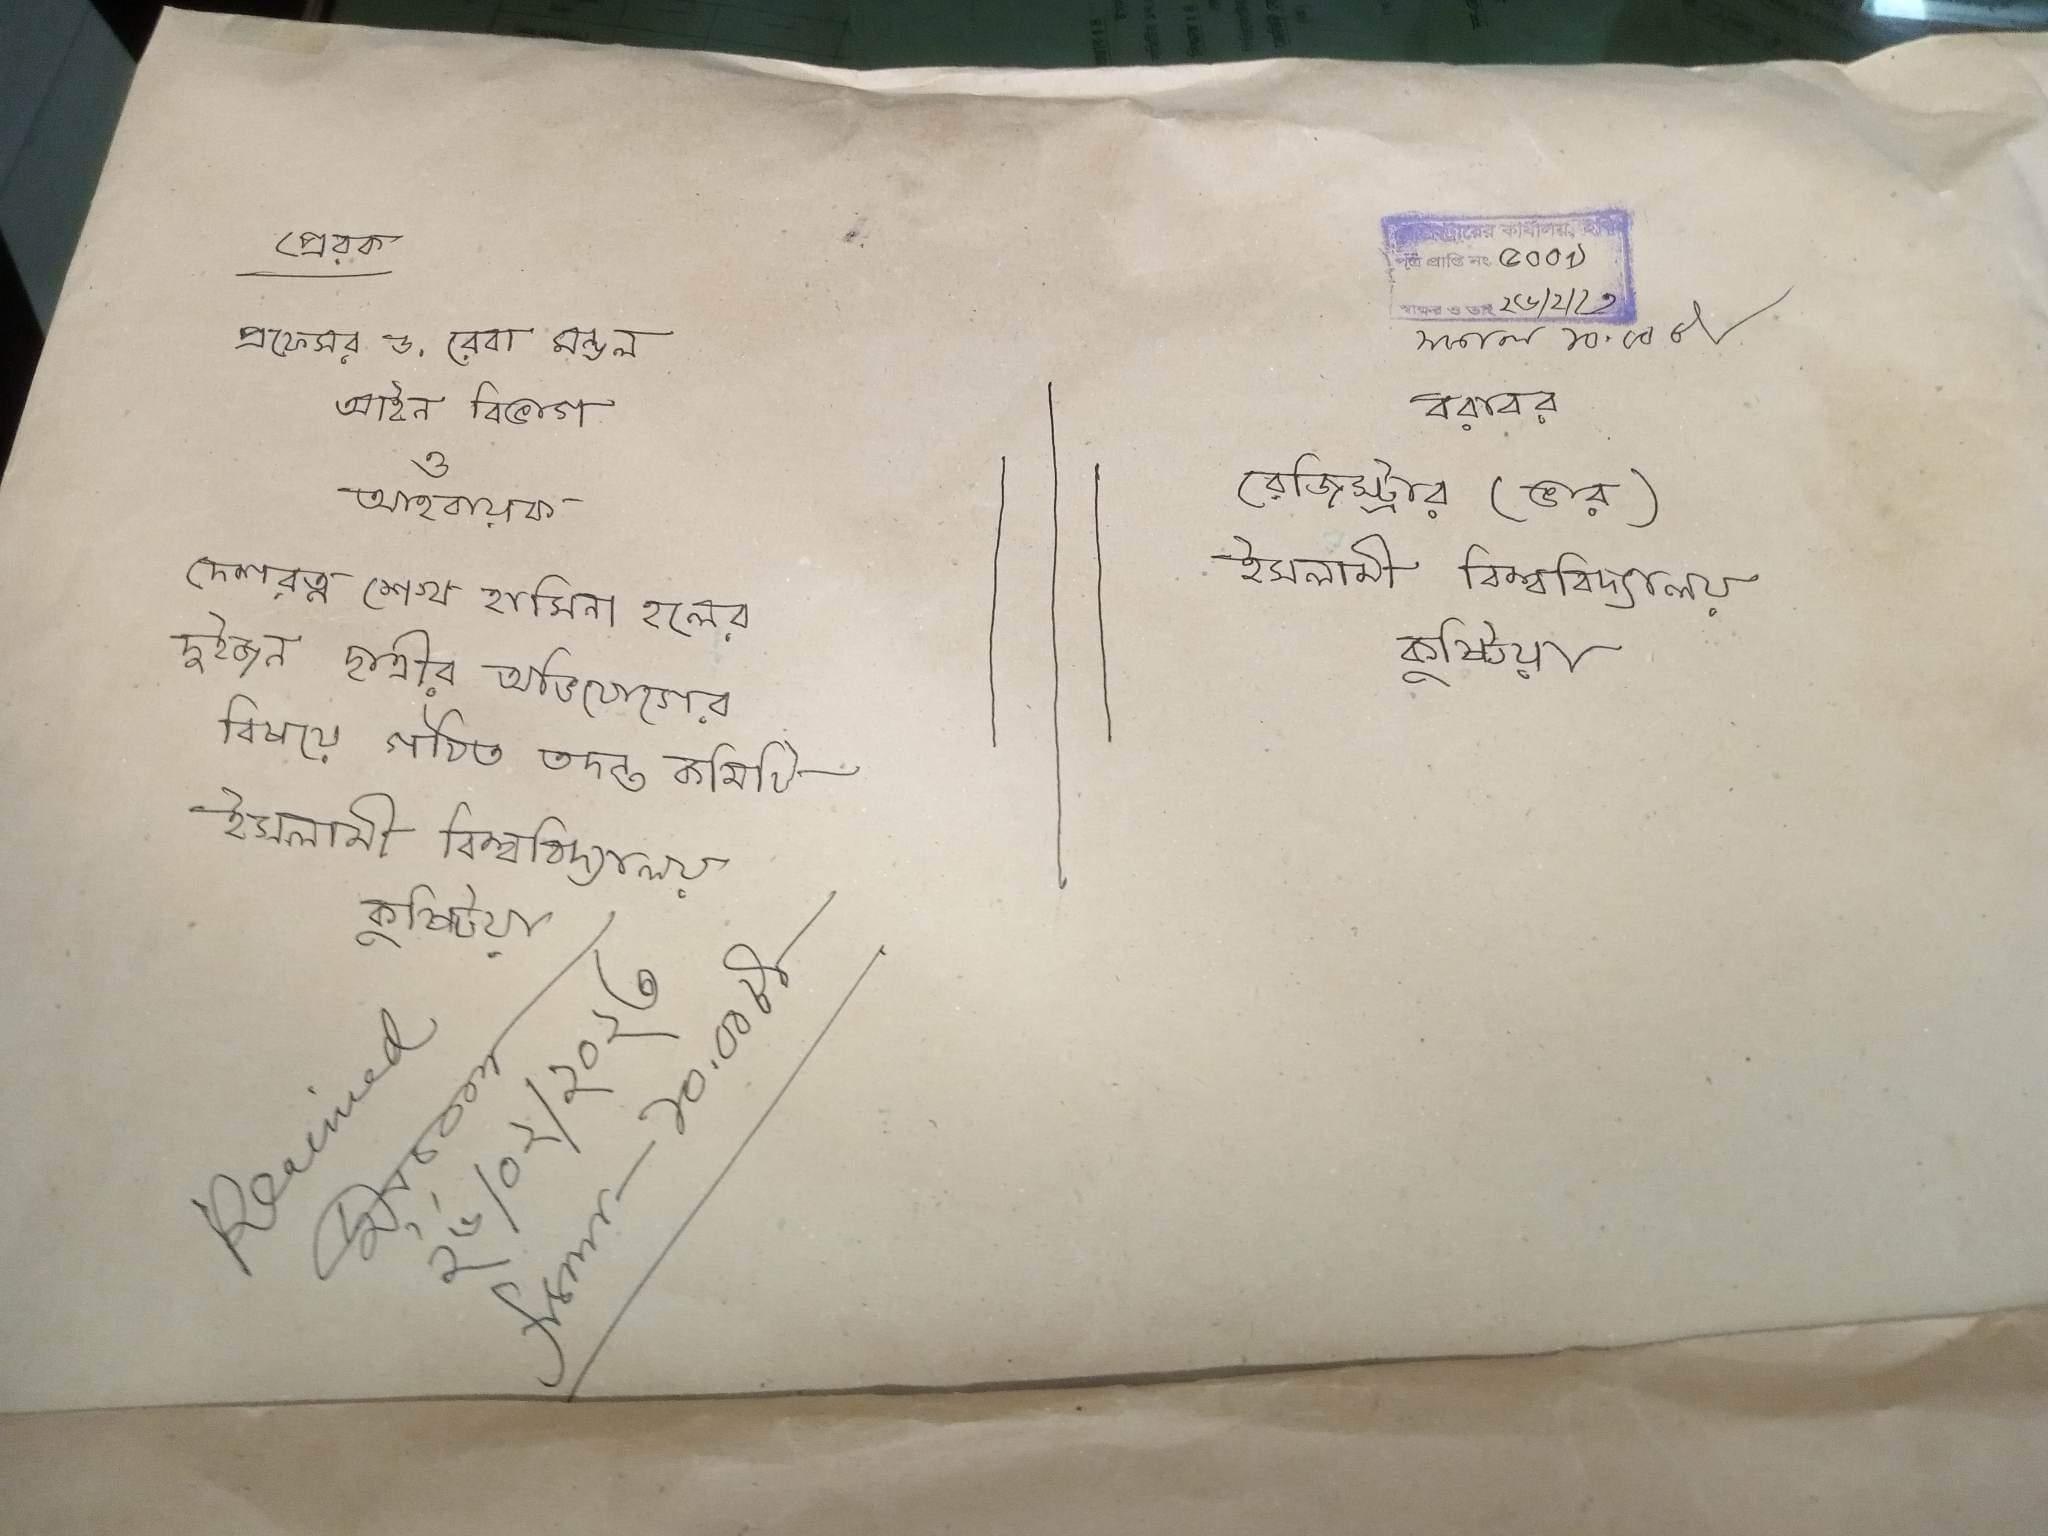 প্রেরক
প্রফেসর ড. রেবা মন্ডল
আইন বিভাগ
ও
আহবায়ক
দেশরত্ন শেখ হাসিনা হলের
দুইজন ছাত্রীর অভিযোগের
বিষয়ে গঠিত তদন্ত কমিটি
ইসলামী বিশ্ববিদ্যালয়
কুষ্টিয়া
Received
২৬/০২/২০২৩
১০.০০
কার্যালয়,
পত্র প্রাপ্তি নং ৫০০১
স্বাক্ষর ও তাং ২৬/২/২৩
সকাল ১০.০০
বরাবর
রেজিস্ট্রার (ভার)
ইসলামী বিশ্ববিদ্যালয়
কুষ্টিয়া